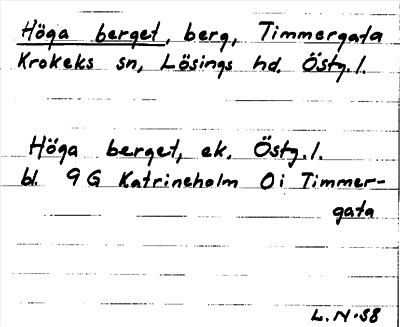 Höga berget, berg, Timmergata
Krokeks sn, Lösings hd. Östg. l.
Höga berget, ek. Östg. l.
bl. 9 G Katrineholm O i Timmer-
gata
L.N-58